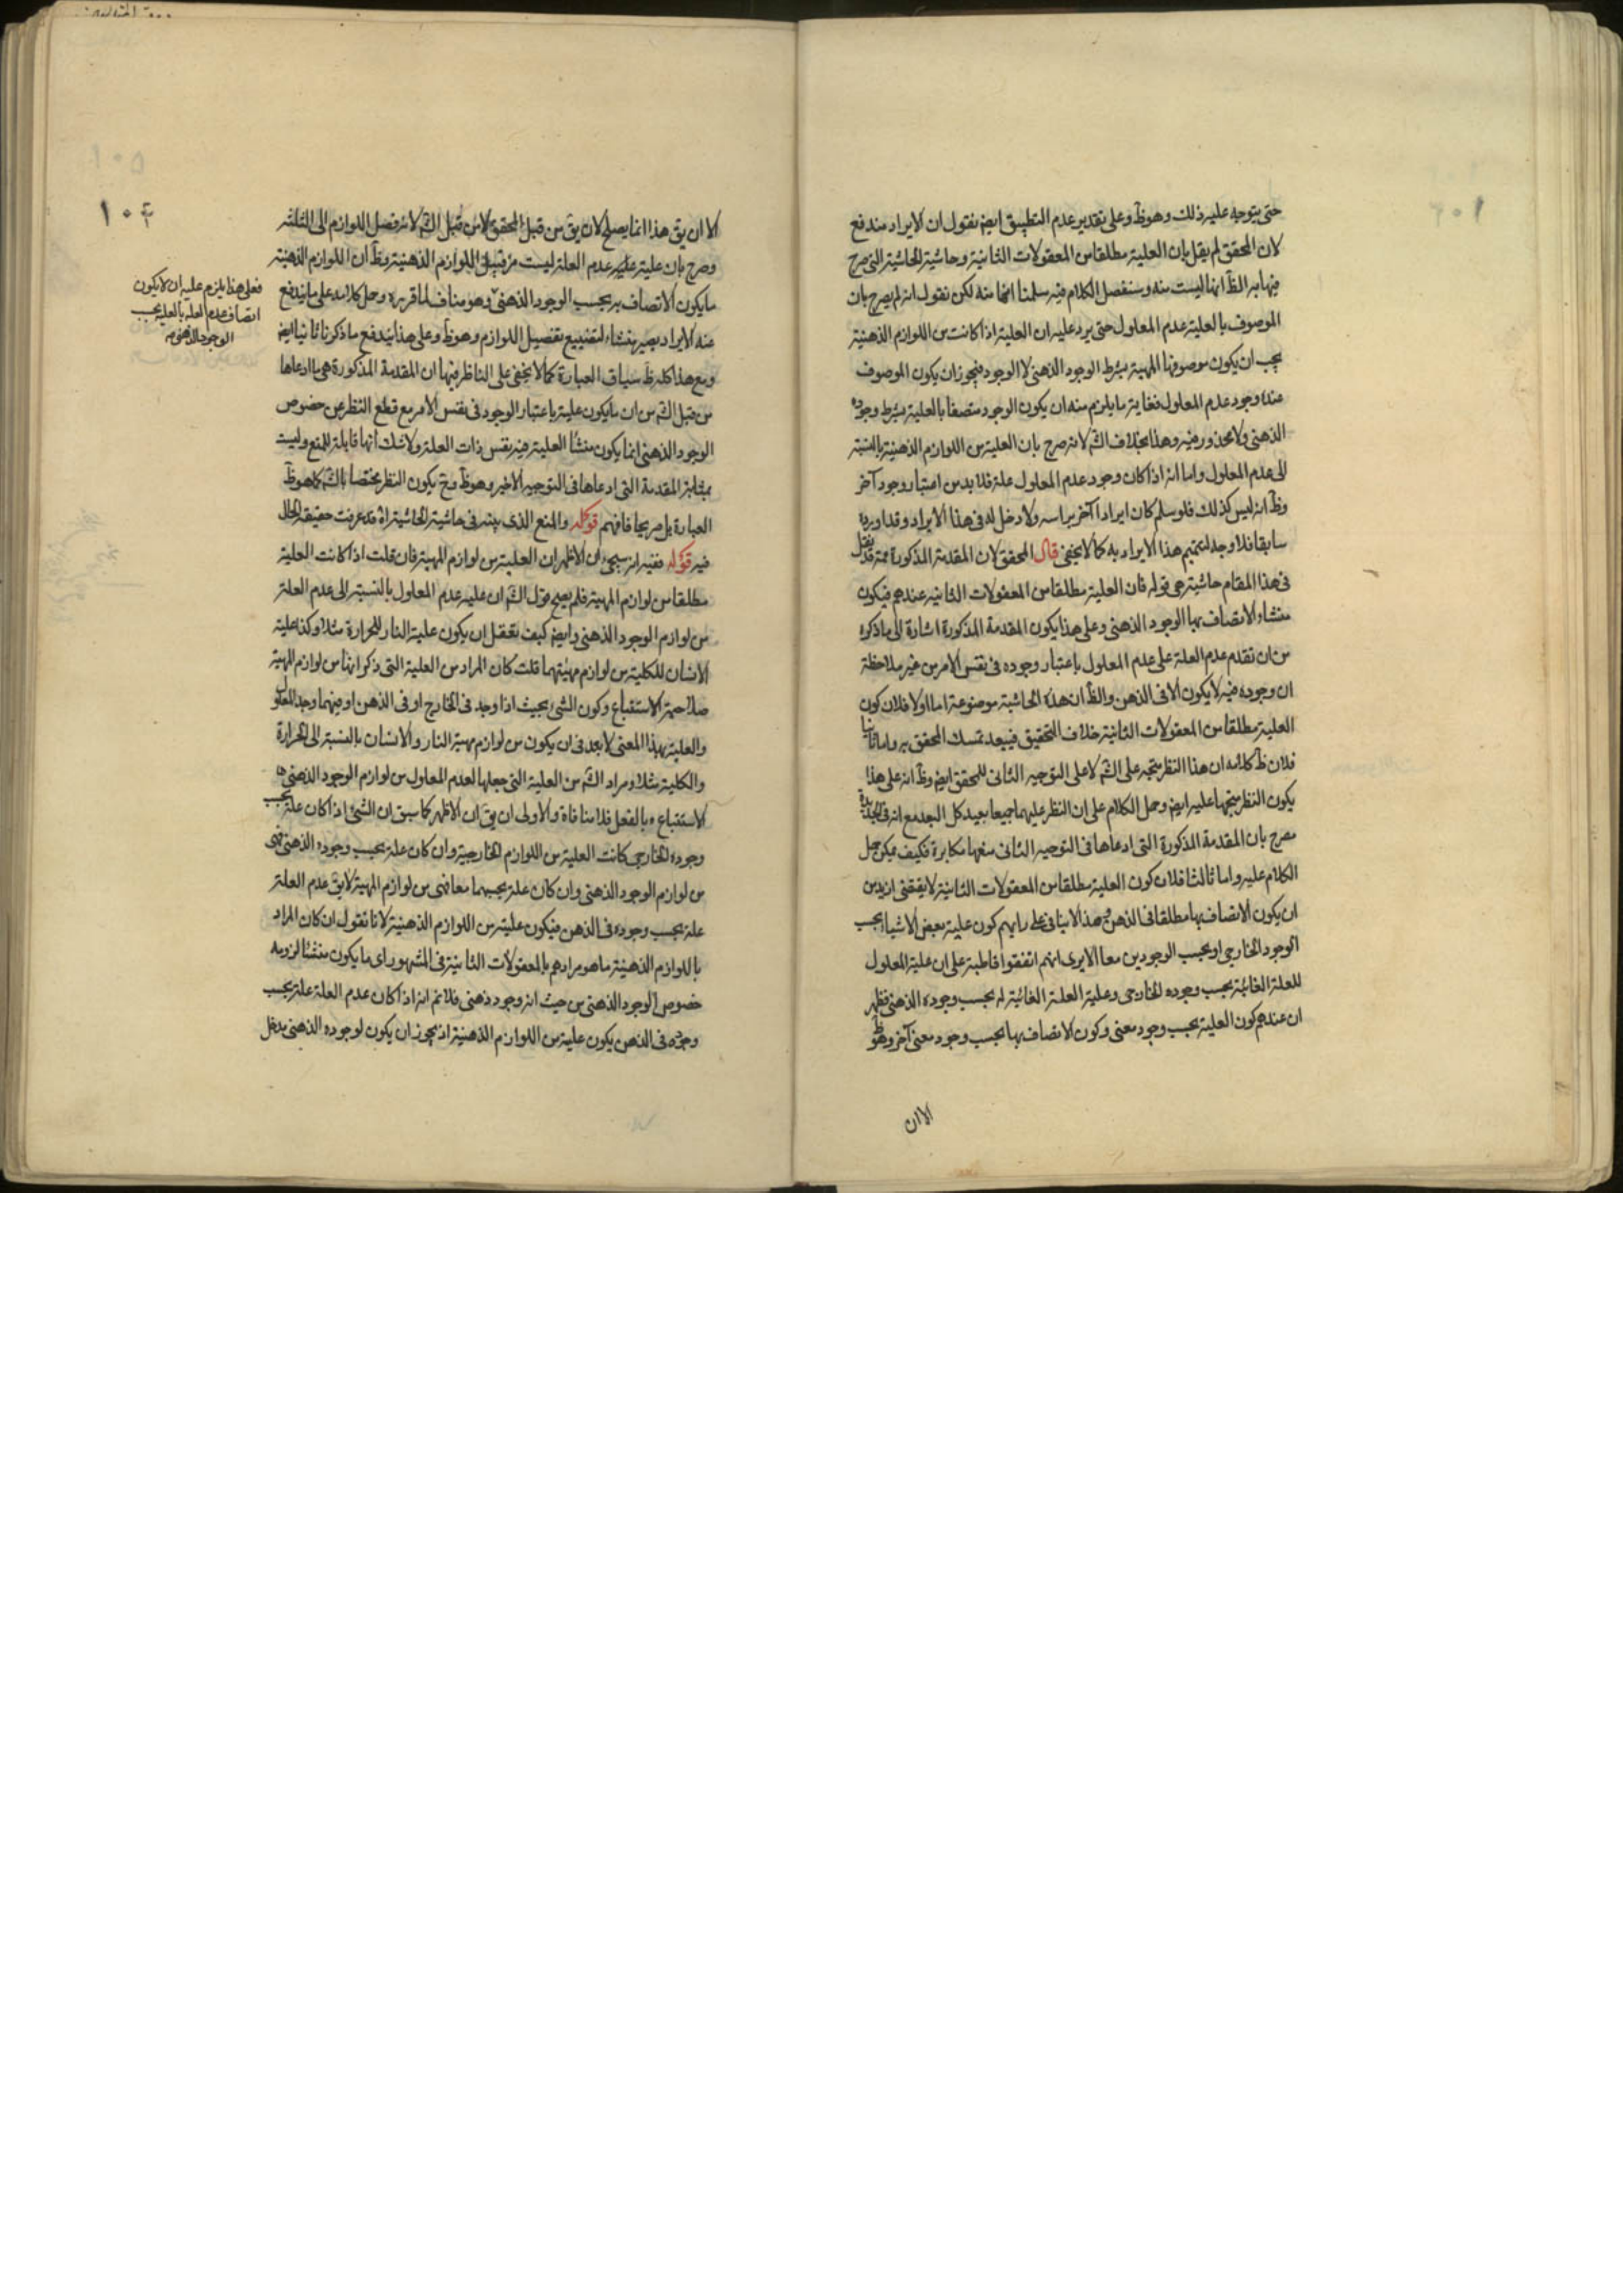 حتى يتوجه عليه ذلك وهو ظ وعلى تقدير عدم التطبيق ايض نقول ان الايراد مندفع
لان المحقق لم يقل بان العلية مطلقا من المعقولات الثانية وحاشية الحاشية التى صرح
فيها بر الظ انها ليست منه وسنفصل الكلام فيه سلمنا انها منه لكن نقول انه لم يصرح بان
الموصوف بالعلية عدم المعلول حتى يرد عليه ان العلية اذا كانت من اللوازم الذهنية
يجب ان يكون موصوفها المهية بشرط الوجود الذهنى لا الوجود فيجوز ان يكون الموصوف
عنده وجود عدم المعلول فغاية ما يلزم منه ان يكون الوجود متصفا بالعلية بشرط وجوده
الذهنى ولا محذور فيه وهذا بخلاف الشم لانه صرح بان العلية من اللوازم الذهنية بالنسبة
الى عدم المعلول واما انه اذا كان وجود عدم المعلول علة فلا بد من اعتبار وجود آخر
وظ انه ليس كذلك فلو سلم كان ايرادا آخر براسه ولا دخل له فى هذا الايراد وقد اورده
سابقا فلا وجه لتتميم هذا الايراد به كما لا يخفى قال المحقق لان المقدمة المذكورة ثمة قد نقل
فى هذا المقام حاشية هى قوله فان العلية مطلقا من المعقولات الثانية عندهم فيكون
منشاء الاتصاف بها الوجود الذهنى وعلى هذا يكون المقدمة المذكورة اشارة الى ما ذكره
من ان تقدم عدم العلة على عدم المعلول باعتبار وجوده فى نفس الامر من غير ملاحظة
ان وجوده فيه لا يكون الا فى الذهن والظ ان هذه الحاشية موضوعة اما اولا فلان كون
العلية مطلقا من المعقولات الثانية خلاف التحقيق فيبعد تمسك المحقق به واما ثانيا
فلان ظ كلامه ان هذا النظر يتجه على الشم لا على التوجيه الثانى للمحقق ايض وظ انه على هذا
يكون النظر متجها عليه ايض وحمل الكلام على ان النظر عليهما جميعا بعيد كل البعد مع انه فى الجديدة
مصرح بان المقدمة المذكورة التى ادعاها فى التوجيه الثانى منعها مكابرة فكيف يمكن حمل
الكلام عليه واما ثالثا فلان كون العلية مطلقا من المعقولات الثانية لا يقتضى ازيد من
ان يكون الاتصاف بها مطلقا فى الذهن وهذا لا ينافى على رايهم كون علية بعض الاشيا بحسب
الوجود الخارجى او بحسب الوجودين معا الا يرى انهم اتفقوا قاطبة على ان علية المعلول
للعلة الغائية بحسب وجوده الخارجى وعلية العلة الغائية له بحسب وجوده الذهنى فظهر
ان عندهم كون العلية بحسب وجود معنى وكون الاتصاف بها بحسب وجود معنى آخر وهو ظ
الا ان
الا ان يق هذا انما يصلح لان يق من قبل المحقق لا من قبل الشم لانه فصل اللوازم الى الثلثه
وصرح بان علية عدم العلة ليست من قبيل اللوازم الذهنية وظ ان اللوازم الذهنية
ما يكون الاتصاف به بحسب الوجود الذهنى وهو مناف لما قرره وحمل كلامه على ما يندفع
عنه الايراد يصير منشاء لتضييع تفصيل اللوازم وهو ظ وعلى هذا يندفع ما ذكرنا ثانيا ايض
ومع هذا كله ظ سياق العبارة كما لا يخفى على الناظر فيها ان المقدمة المذكورة هى ما ادعاها
من قبل الشم من ان ما يكون علية باعتبار الوجود فى نفس الامر مع قطع النظر عن خصوص
الوجود الذهنى انما يكون منشأ العلية فيه نفس ذات العلة ولا شك انها قابلة للمنع وليست
بمثابة المقدمة التى ادعاها فى التوجيه الاخير وهو ظ وح يكون النظر مختصا بالشم كما هو ظ
العبارة بل صريحا فافهم قوله والمنع الذى بينه فى حاشية الحاشية اه قد عرفت حقيقة الحال
فيه قوله ففيه انه سيجئ ان الاظهر ان العلية من لوازم المهية فان قلت اذا كانت العلية
مطلقا من لوازم المهية فلم يصح قول الشم ان علية عدم المعلول بالنسبة الى عدم العلة
من لوازم الوجود الذهنى وايض كيف يعقل ان يكون علية النار للحرارة مثلا وكذا علية
الانسان للكلية من لوازم مهيتهما قلت كان المراد من العلية التى ذكر انها من لوازم المهية
صلاحية الاستتباع وكون الشى بحيث اذا وجد فى الخارج او فى الذهن او فيهما وجد المعلول
والعلية بهذا المعنى لا بعد فى ان يكون من لوازم مهية النار والانسان بالنسبة الى الحرارة
والكلية مثلا ومراد الشم من العلية التى جعلها لعدم المعلول من لوازم الوجود الذهنى
الاستتباع بالفعل فلا منافاة والاولى ان يق ان الاظهر كما سبق ان الشئ اذا كان علة بحسب
وجوده الخارجى كانت العلية من اللوازم الخارجية وان كان علة بحسب وجوده الذهنى فهى
من لوازم الوجود الذهنى وان كان علة بحسبهما معا فهى من لوازم المهية لا يق عدم العلة
علة بحسب وجوده فى الذهن فيكون علية من اللوازم الذهنية لانا نقول ان كان المراد
باللوازم الذهنية ما هو مرادهم بالمعقولات الثانية فى المشهور اى ما يكون منشأ لزومه
خصوص الوجود الذهنى من حيث انه وجود ذهنى فلا نم انه اذا كان عدم العلة علة بحسب
وجوده فى الذهن يكون علية من اللوازم الذهنية اذ يجوز ان يكون لوجوده الذهنى مدخل
فعلى هذا يلزم عليه ان لا يكون
اتصاف عدم العله بالعلية بحسب
الوجود الذهنى